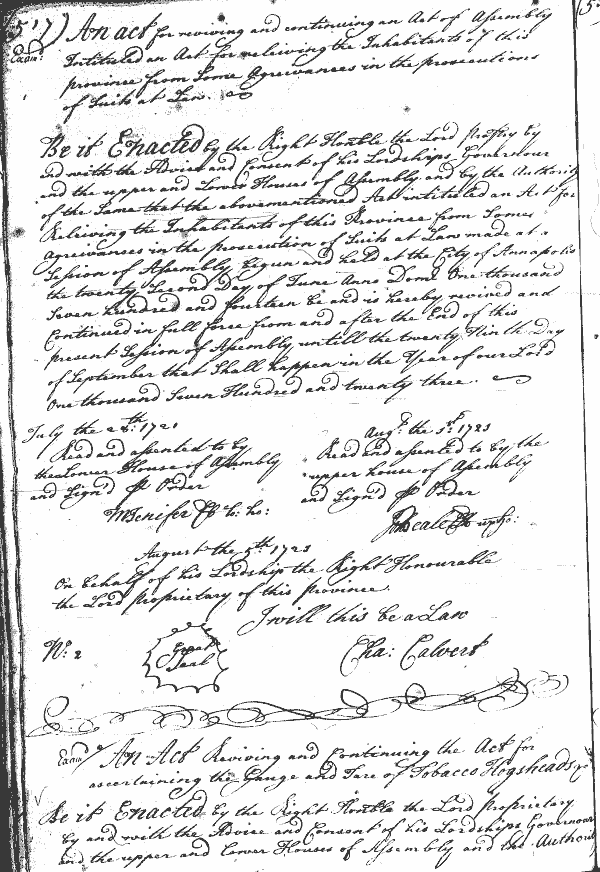 517) An act for reviving and continuing an Act of Assembly
Exam:d
Intituled an Act for releiving the Inhabitants of this
province from Some Agreivances in the prosecutions
of Suits at Law.
Be it Enacted by the Right Honble the Lord Proptry by
and with the Advice and Consent of his Lordships Governour
and the upper and Lower Houses of Assembly and by the Authority
of the Same that the abovementioned Act intituled an Act for
Releiving the Inhabitants of this Province from Some
Agreivances in the prosecution of Suits at Law made at a
Session of Assembly begun and held at the City of Annapolis
the twenty Second Day of June Anno Domi One thousand
Seven hundred and fourteen be and is hereby revived and
Continued in full force from and after the End of this
present Session of Assembly untill the twenty Ninth Day
of September that Shall happen in the Year of our Lord
One thousand Seven Hundred and twenty three.
July the 28th: 1721
Read and assented to by
the Lower House of Assembly
and Sign'd Order
MJenifer Cl lo: ho:
Augst the 5th: 1721
Read and assented to by the
upper house of Assembly
and Sign'd Order
Jno Beale Cl up ho:
August the 5th 1721
On behalf of his Lordship the Right Honourable
the Lord Proprietary of this province.
I will this be a Law
No: 2
Great
Seal
Cha: Calvert
Exam:d An Act Reviving and Continuing the Act for
ascertaining the Gauge and Tare of Tobacco Hogsheads
Be it Enacted by the Right Honble the Lord Proprietary
by and with the Advice and Consent of his Lordships Governour
and the upper and Lower Houses of Assembly and the Authority